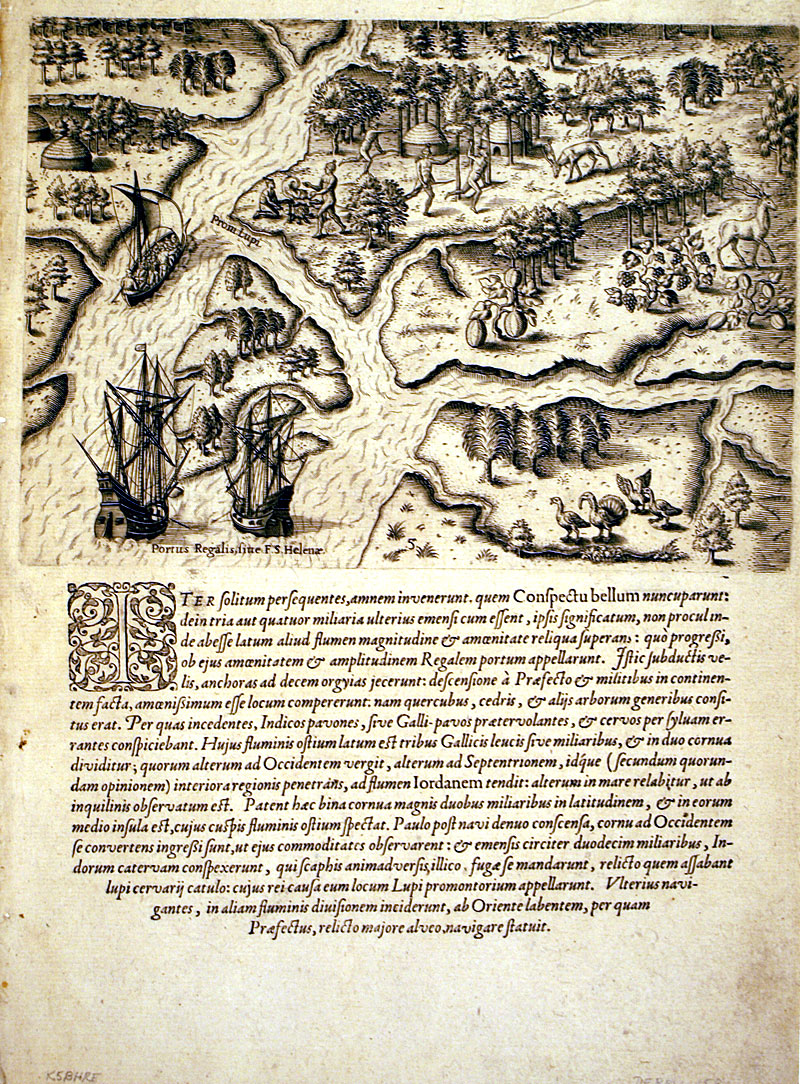 Prom. Lupi.
Portus Regalis, sive F. S. Helenæ
5
ITER solitum persequentes, amnem invenerunt. quem Conspectu bellum nuncuparunt:
dein tria aut quatuor miliaria ulterius emensi cum essent, ipsis significatum, non procul in-
de abesse latum aliud flumen magnitudine & amœnitate reliqua superans: quò progreßi,
ob ejus amœnitatem & amplitudinem Regalem portum appellarunt. Istic subductis ve-
lis, anchoras ad decem orgyias jecerunt: descensione à Præfecto & militibus in continen-
tem facta, amœnißimum esse locum compererunt: nam quercubus, cedris, & alijs arborum generibus consi-
tus erat. Per quas incedentes, Indicos pavones, sive Galli-pavos prætervolantes, & cervos per syluam er-
rantes conspiciebant. Hujus fluminis ostium latum est tribus Gallicis leucis sive miliaribus, & in duo cornua
dividitur; quorum alterum ad Occidentem vergit, alterum ad Septentrionem, idque (secundum quorun-
dam opinionem) interiora regionis penetrãs, ad flumen Iordanem tendit: alterum in mare relabitur, ut ab
inquilinis observatum est. Patent hæc bina cornua magnis duobus miliaribus in latitudinem, & in eorum
medio insula est, cujus cuspis fluminis ostium spectat. Paulo post navi denuo conscensa, cornu ad Occidentem
se convertens ingreßi sunt, ut ejus commoditates observarent: & emensis circiter duodecim miliaribus, In-
dorum catervam conspexerunt, qui scaphis animadversis, illico, fugæ se mandarunt, relicto quem assabant
lupi cervarij catulo: cujus rei causa eum locum Lupi promontorium appellarunt. Vlterius navi-
gantes, in aliam fluminis divisionem inciderunt, ab Oriente labentem, per quam
Præfectus, relicto majore alveo, navigare statuit.
K5BHRE